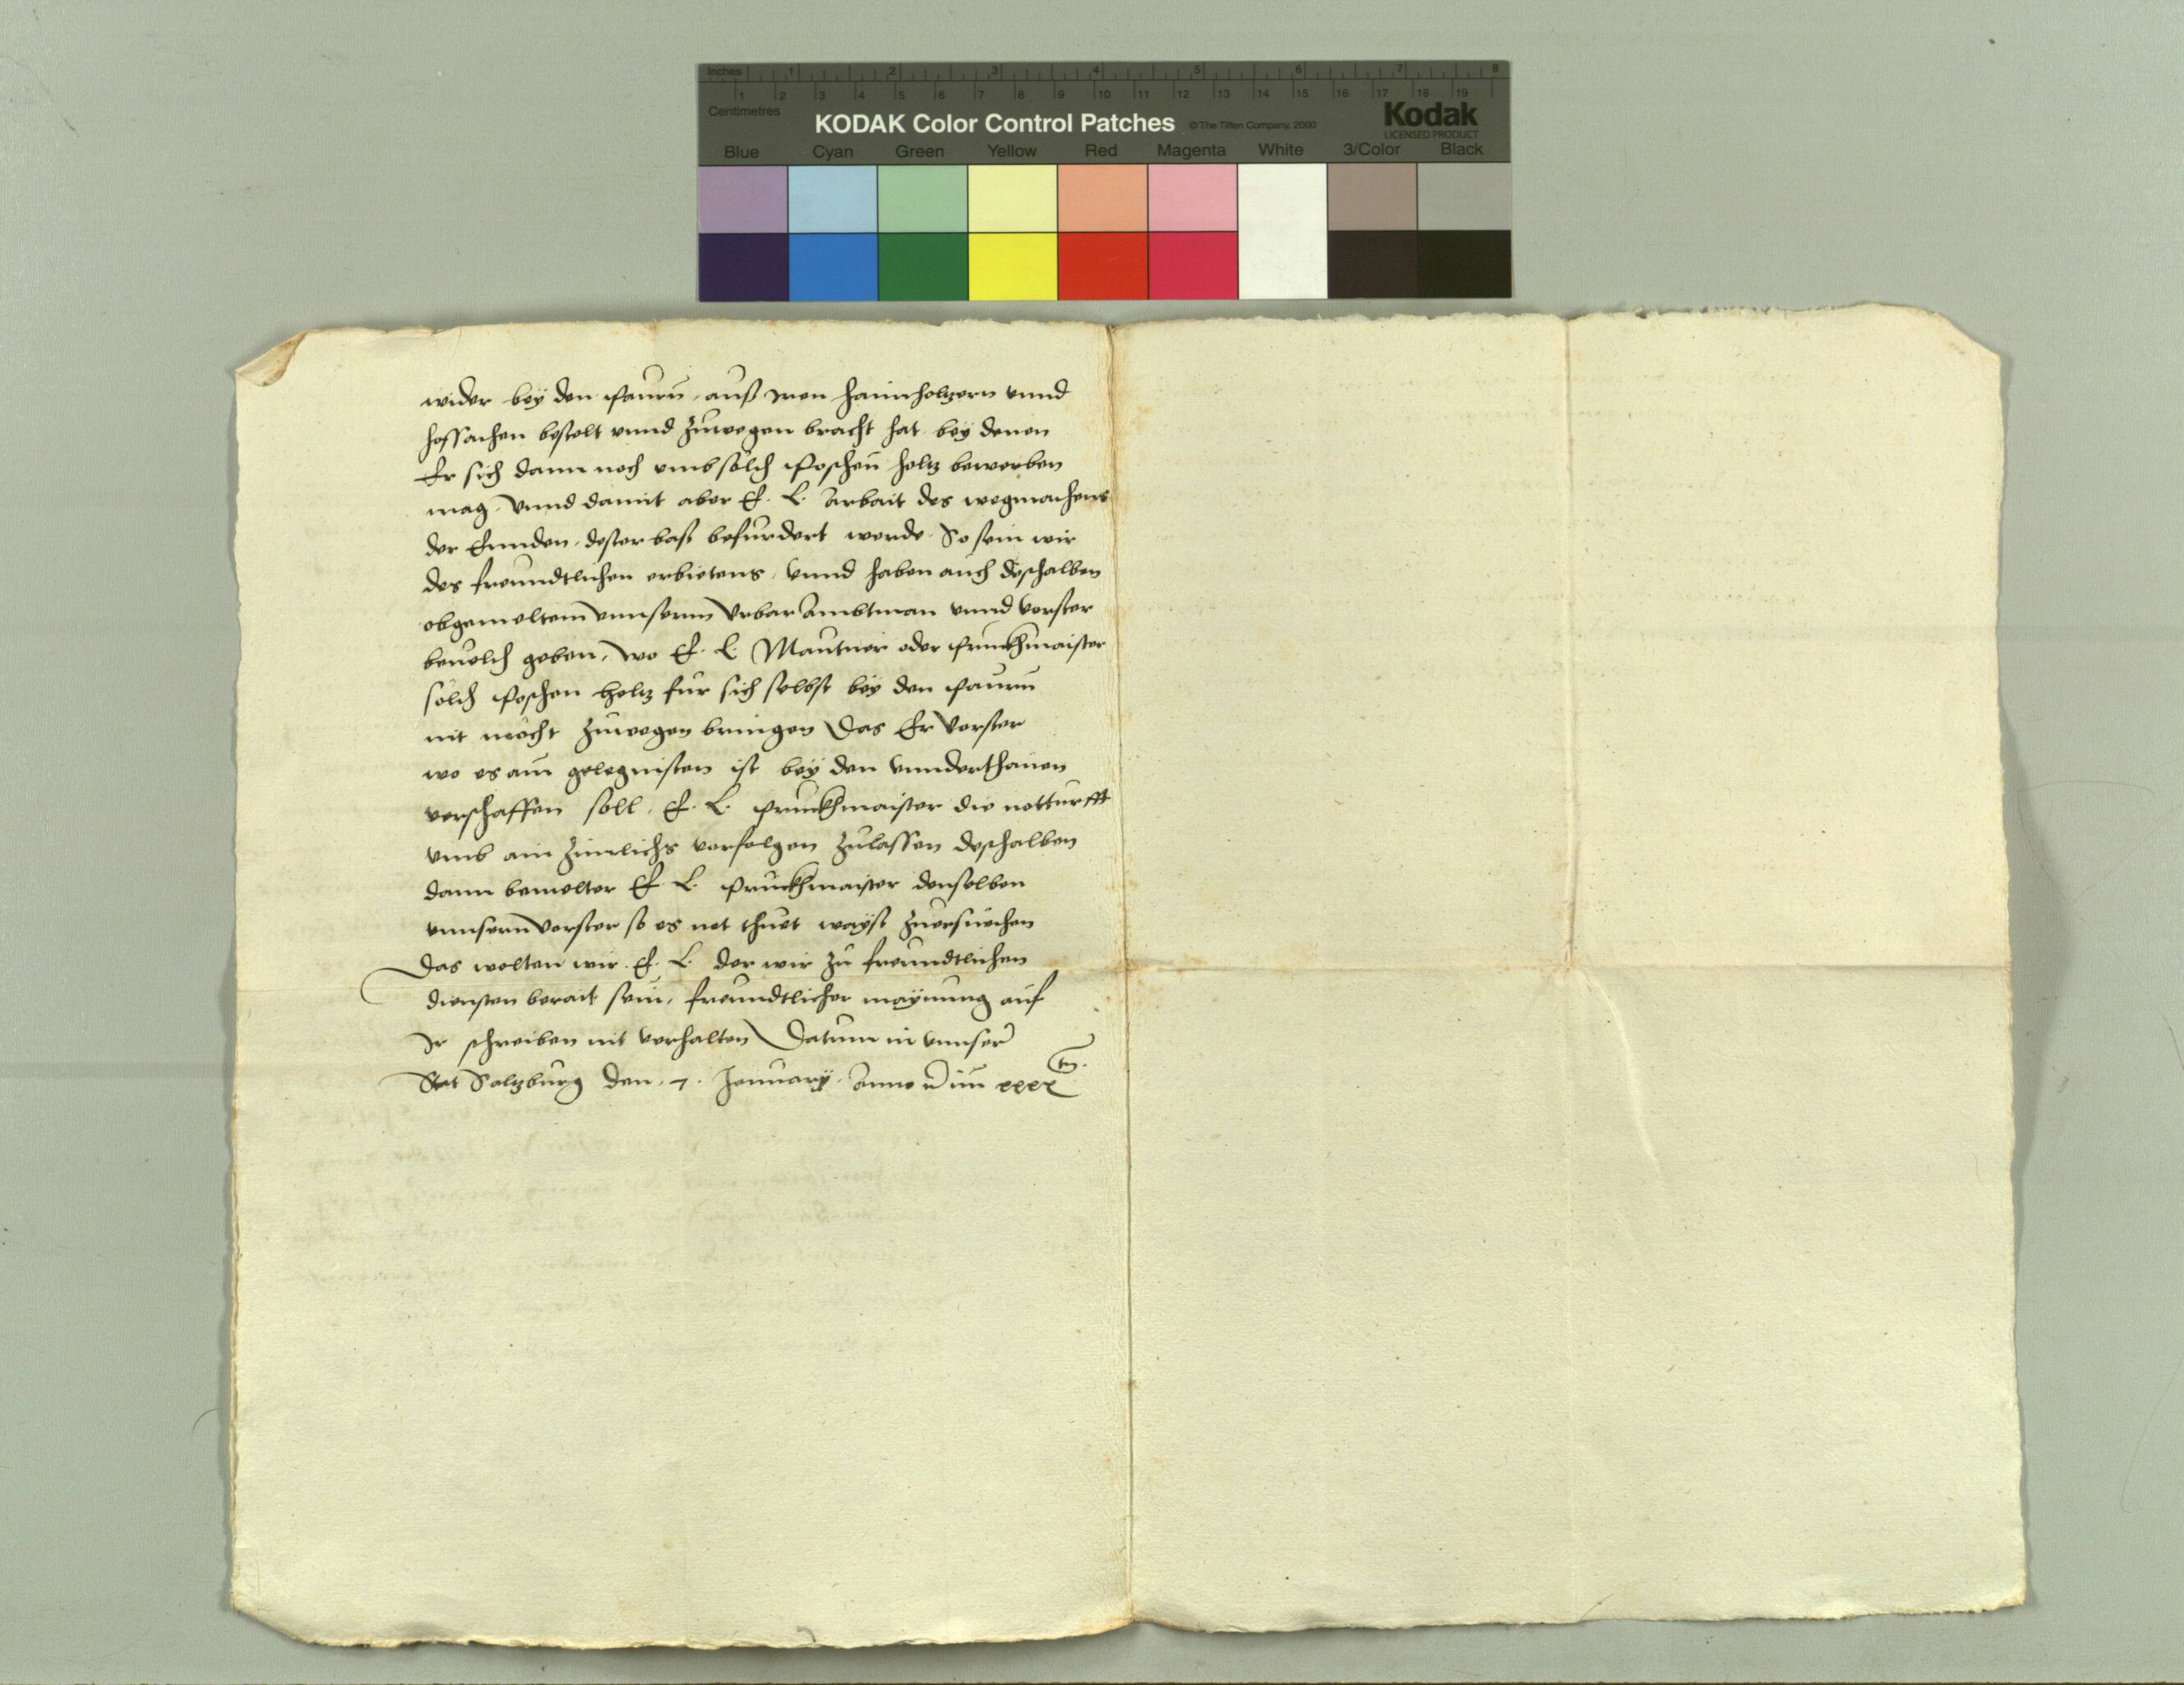 Inches 1 2 3 4 5 6 7 8
1 2 3 4 5 6 7 8 9 10 11 12 13 14 15 16 17 18 19
Centimetres
KODAK Color Control Patches © The Tiffen Company, 2000
Kodak
LICENSED PRODUCT
Blue Cyan Green Yellow Red Magenta White 3/Color Black
wider bey den paurn, auß iren haimholtzern vnnd
bestelt vnnd zuwegen bracht hat bey denen
Er sich dann noch vmb sölch poschen holtz bewerben
mag. Vnnd damit aber E. L. arbait des wegmachens
der Ennden, dester bass befürdert werde. So sein wir
des freundtlichen erbietens, Vnnd haben auch deßhalben
obgemeltem vnnserm Vrbar Ambtman vnnd Vorster
beuelch geben, wo E. L. Mautner oder pruckhmaister
sölch poschen holtz für sich selbst bey den paurn
nit möcht zuwegen bringen Das Er Vorster
wo es am gelegnisten ist bey den vnnderthanen
verschaffen soll, E. L. pruckhmaister die notturfft
vmb ain zimlichs verfolgen zulassen deßhalben
dann bemelter E. L. pruckhmaister denselben
vnnsern Vorster so es not thuet wayst zuersuechen
Das wolten wir E. L. der wir zu freundtlichen
diensten berait sein, freundtlicher maynung auf
Ir schreiben nit verhalten Datum in vnnser
Stat Saltzburg den .7. January Anno im xxxx ten.